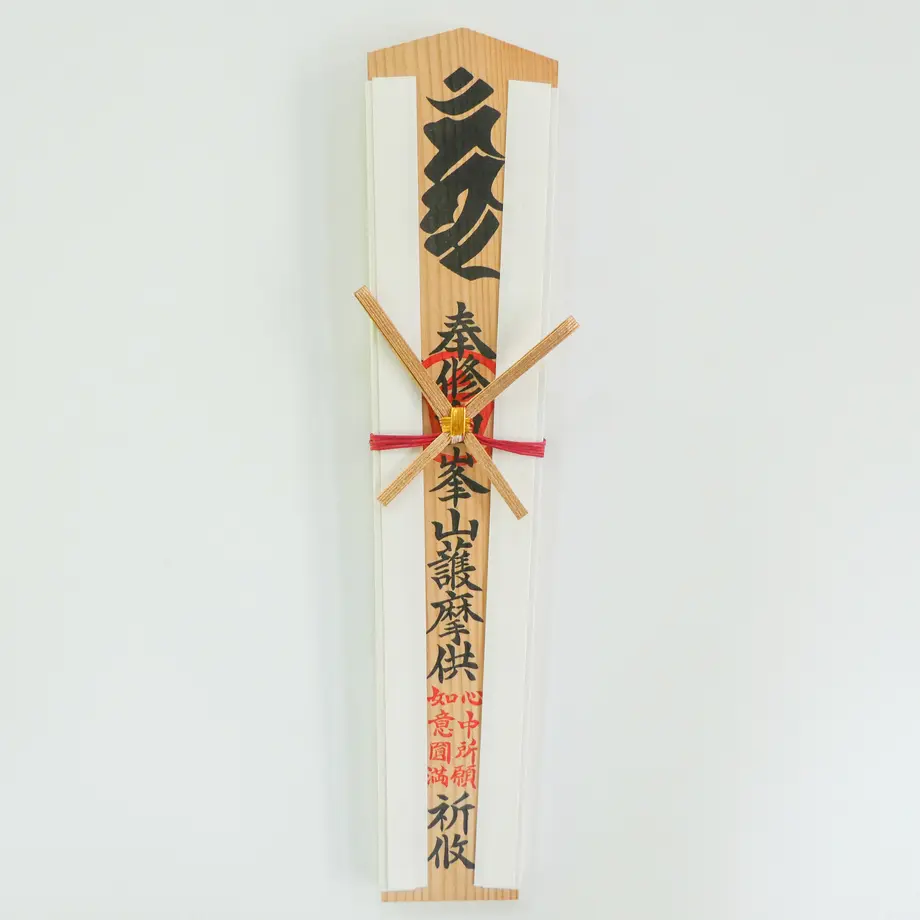 奉修
峯山護摩供
心中所願
如意圓満
祈攸